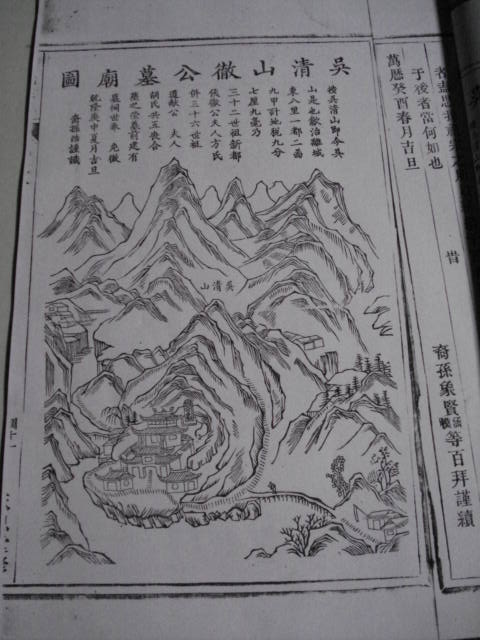 于後者當何如也
萬曆癸酉春月吉旦
昔
裔孫象賢
等百拜謹續
吳清山徹公墓廟圖
按吳清山即今吳
山是也歙治離城
東八里一都二啚
九甲計地稅九分
七厘九毫乃
三十二世祖新都
侯徹公夫人方氏
併三十六世祖
道獻公 夫人
胡氏共五喪合
塟之崇墓前建有
墓祠世承 先徽
乾隆庚申夏月吉旦
裔孫祜謹識
吳清山
圖十一